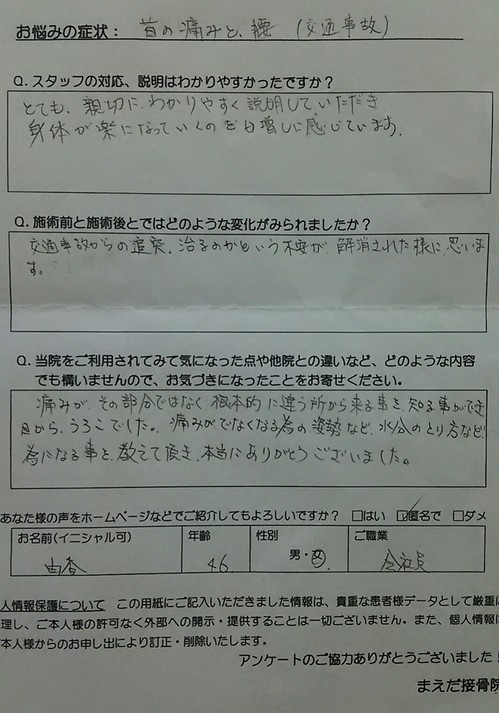 お悩みの症状： 首の痛みと、腰 (交通事故)
Q. スタッフの対応、説明はわかりやすかったですか？
とても、親切に、わかりやすく説明していただき
身体が楽になっていくのを日増しに感じています。
Q. 施術前と施術後とではどのような変化がみられましたか？
交通事故からの追突。治るのかという不安が、解消された様に思いま
す。
Q. 当院をご利用されてみて気になった点や他院との違いなど、どのような内容
でも構いませんので、お気づきになったことをお寄せください。
痛みが、その部分ではなく、根本的に違う所から来る事を、知る事ができ
目から、うろこでした。痛みがでなくなる為の姿勢など、水分のとり方など
為になる事を、教えて頂き、本当にありがとうございました。
あなた様の声をホームページなどでご紹介してもよろしいですか？ □はい ☑匿名で □ダメ
お名前(イニシャル可) 年齢 性別 ご職業
由香 46 男・女 会社員
人情報保護について この用紙にご記入いただきました情報は、貴重な患者様データとして厳重に
理し、ご本人様の許可なく外部への開示・提供することは一切ございません。また、個人情報は
本人様からのお申し出により訂正・削除いたします。
アンケートのご協力ありがとうございました！
まえだ接骨院